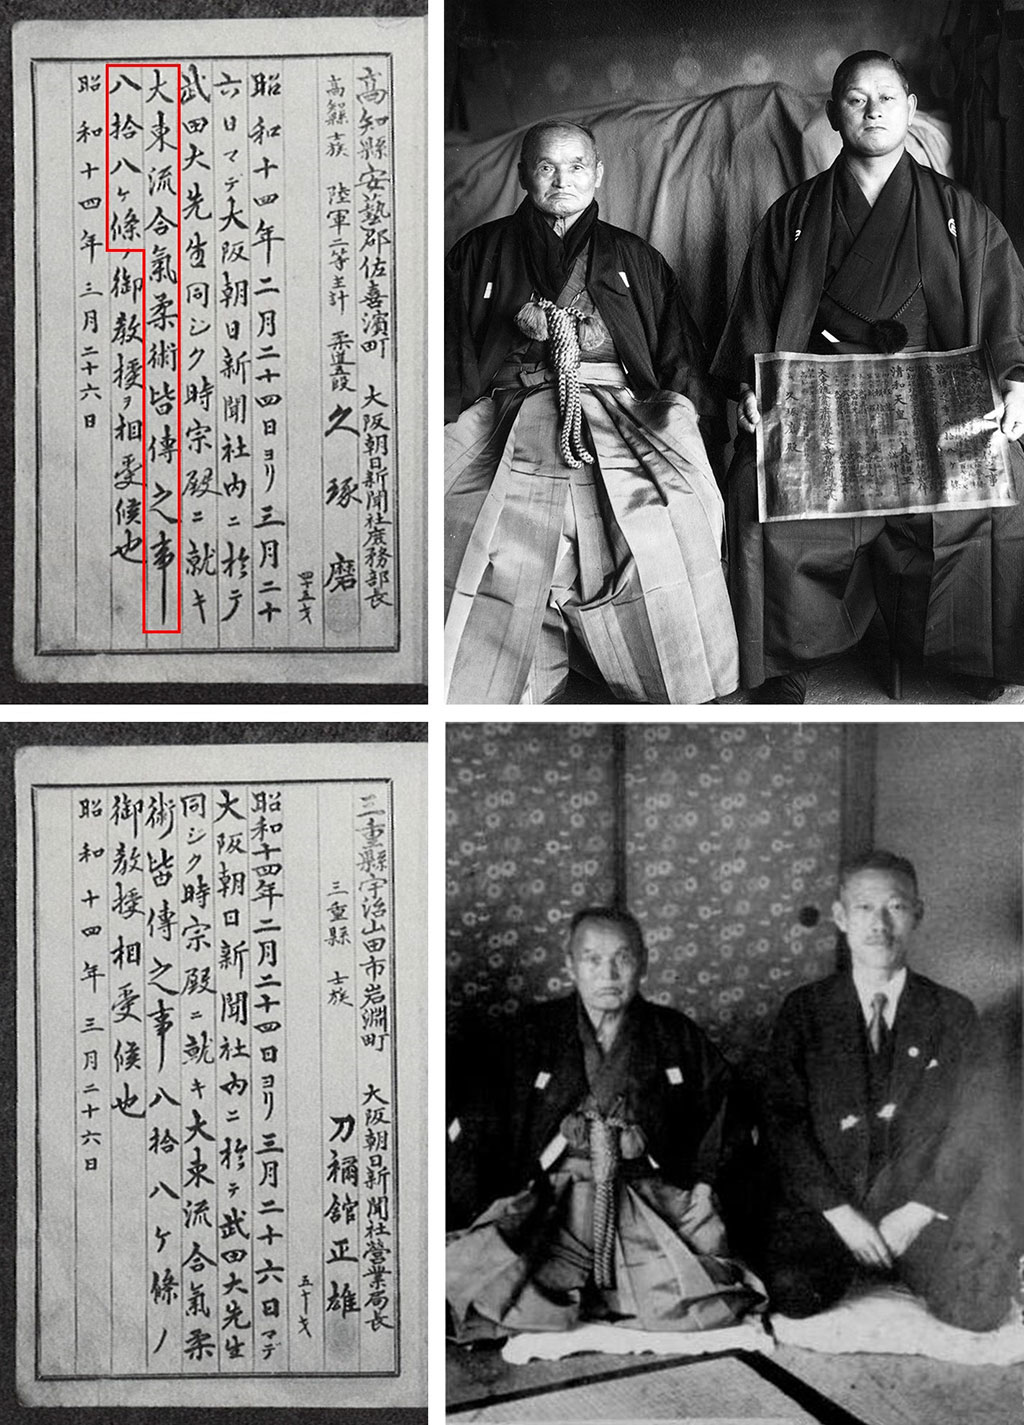 高知縣安藝郡佐喜濱町 大阪朝日新聞社庶務部長
高知縣士族 陸軍二等主計 柔道五段 久琢磨
四十五才
昭和十四年二月二十四日ヨリ三月二十
六日マデ大阪朝日新聞社內ニ於テ
武田大先生同シク時宗殿ニ就キ
大東流合氣柔術皆傳之事
八拾八ヶ條ノ御教授ヲ相受候也
昭和十四年三月二十六日
清和天皇
久琢磨殿
三重縣宇治山田市岩淵町 大阪朝日新聞社營業局長
三重縣 士族 刀禰館正雄
五十才
昭和十四年二月二十四日ヨリ三月二十六日マデ
大阪朝日新聞社內ニ於テ武田大先生
同シク時宗殿ニ就キ大東流合氣柔
術皆傳之事八拾八ヶ條ノ
御教授相受候也
昭和十四年三月二十六日